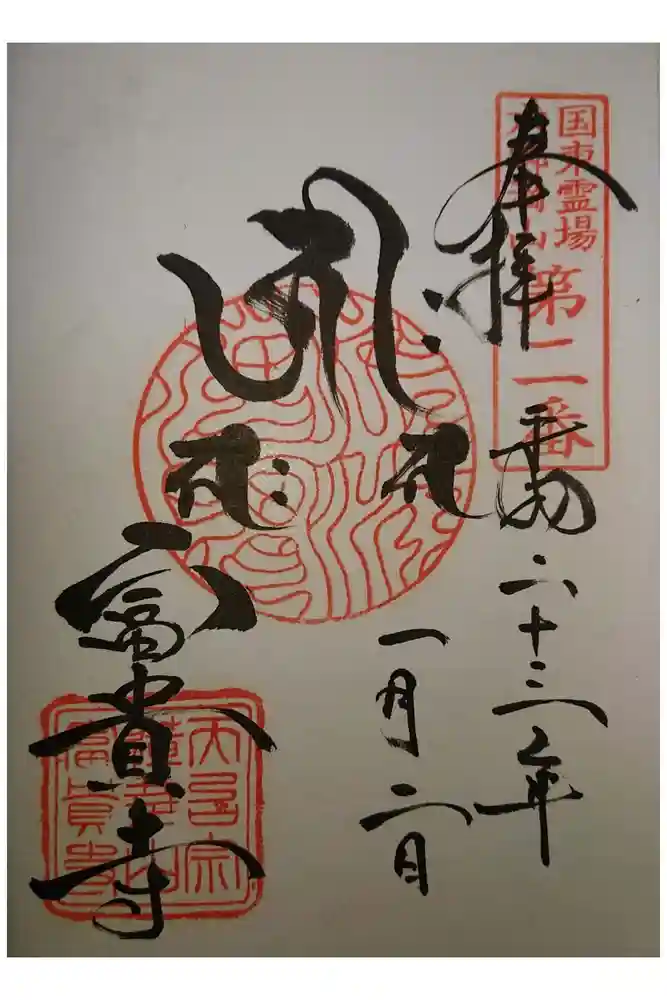 国東霊場
六郷満山
第二番
奉拝
平成二十三年
一月二日
富貴寺
天台宗
蓮華山
富貴寺